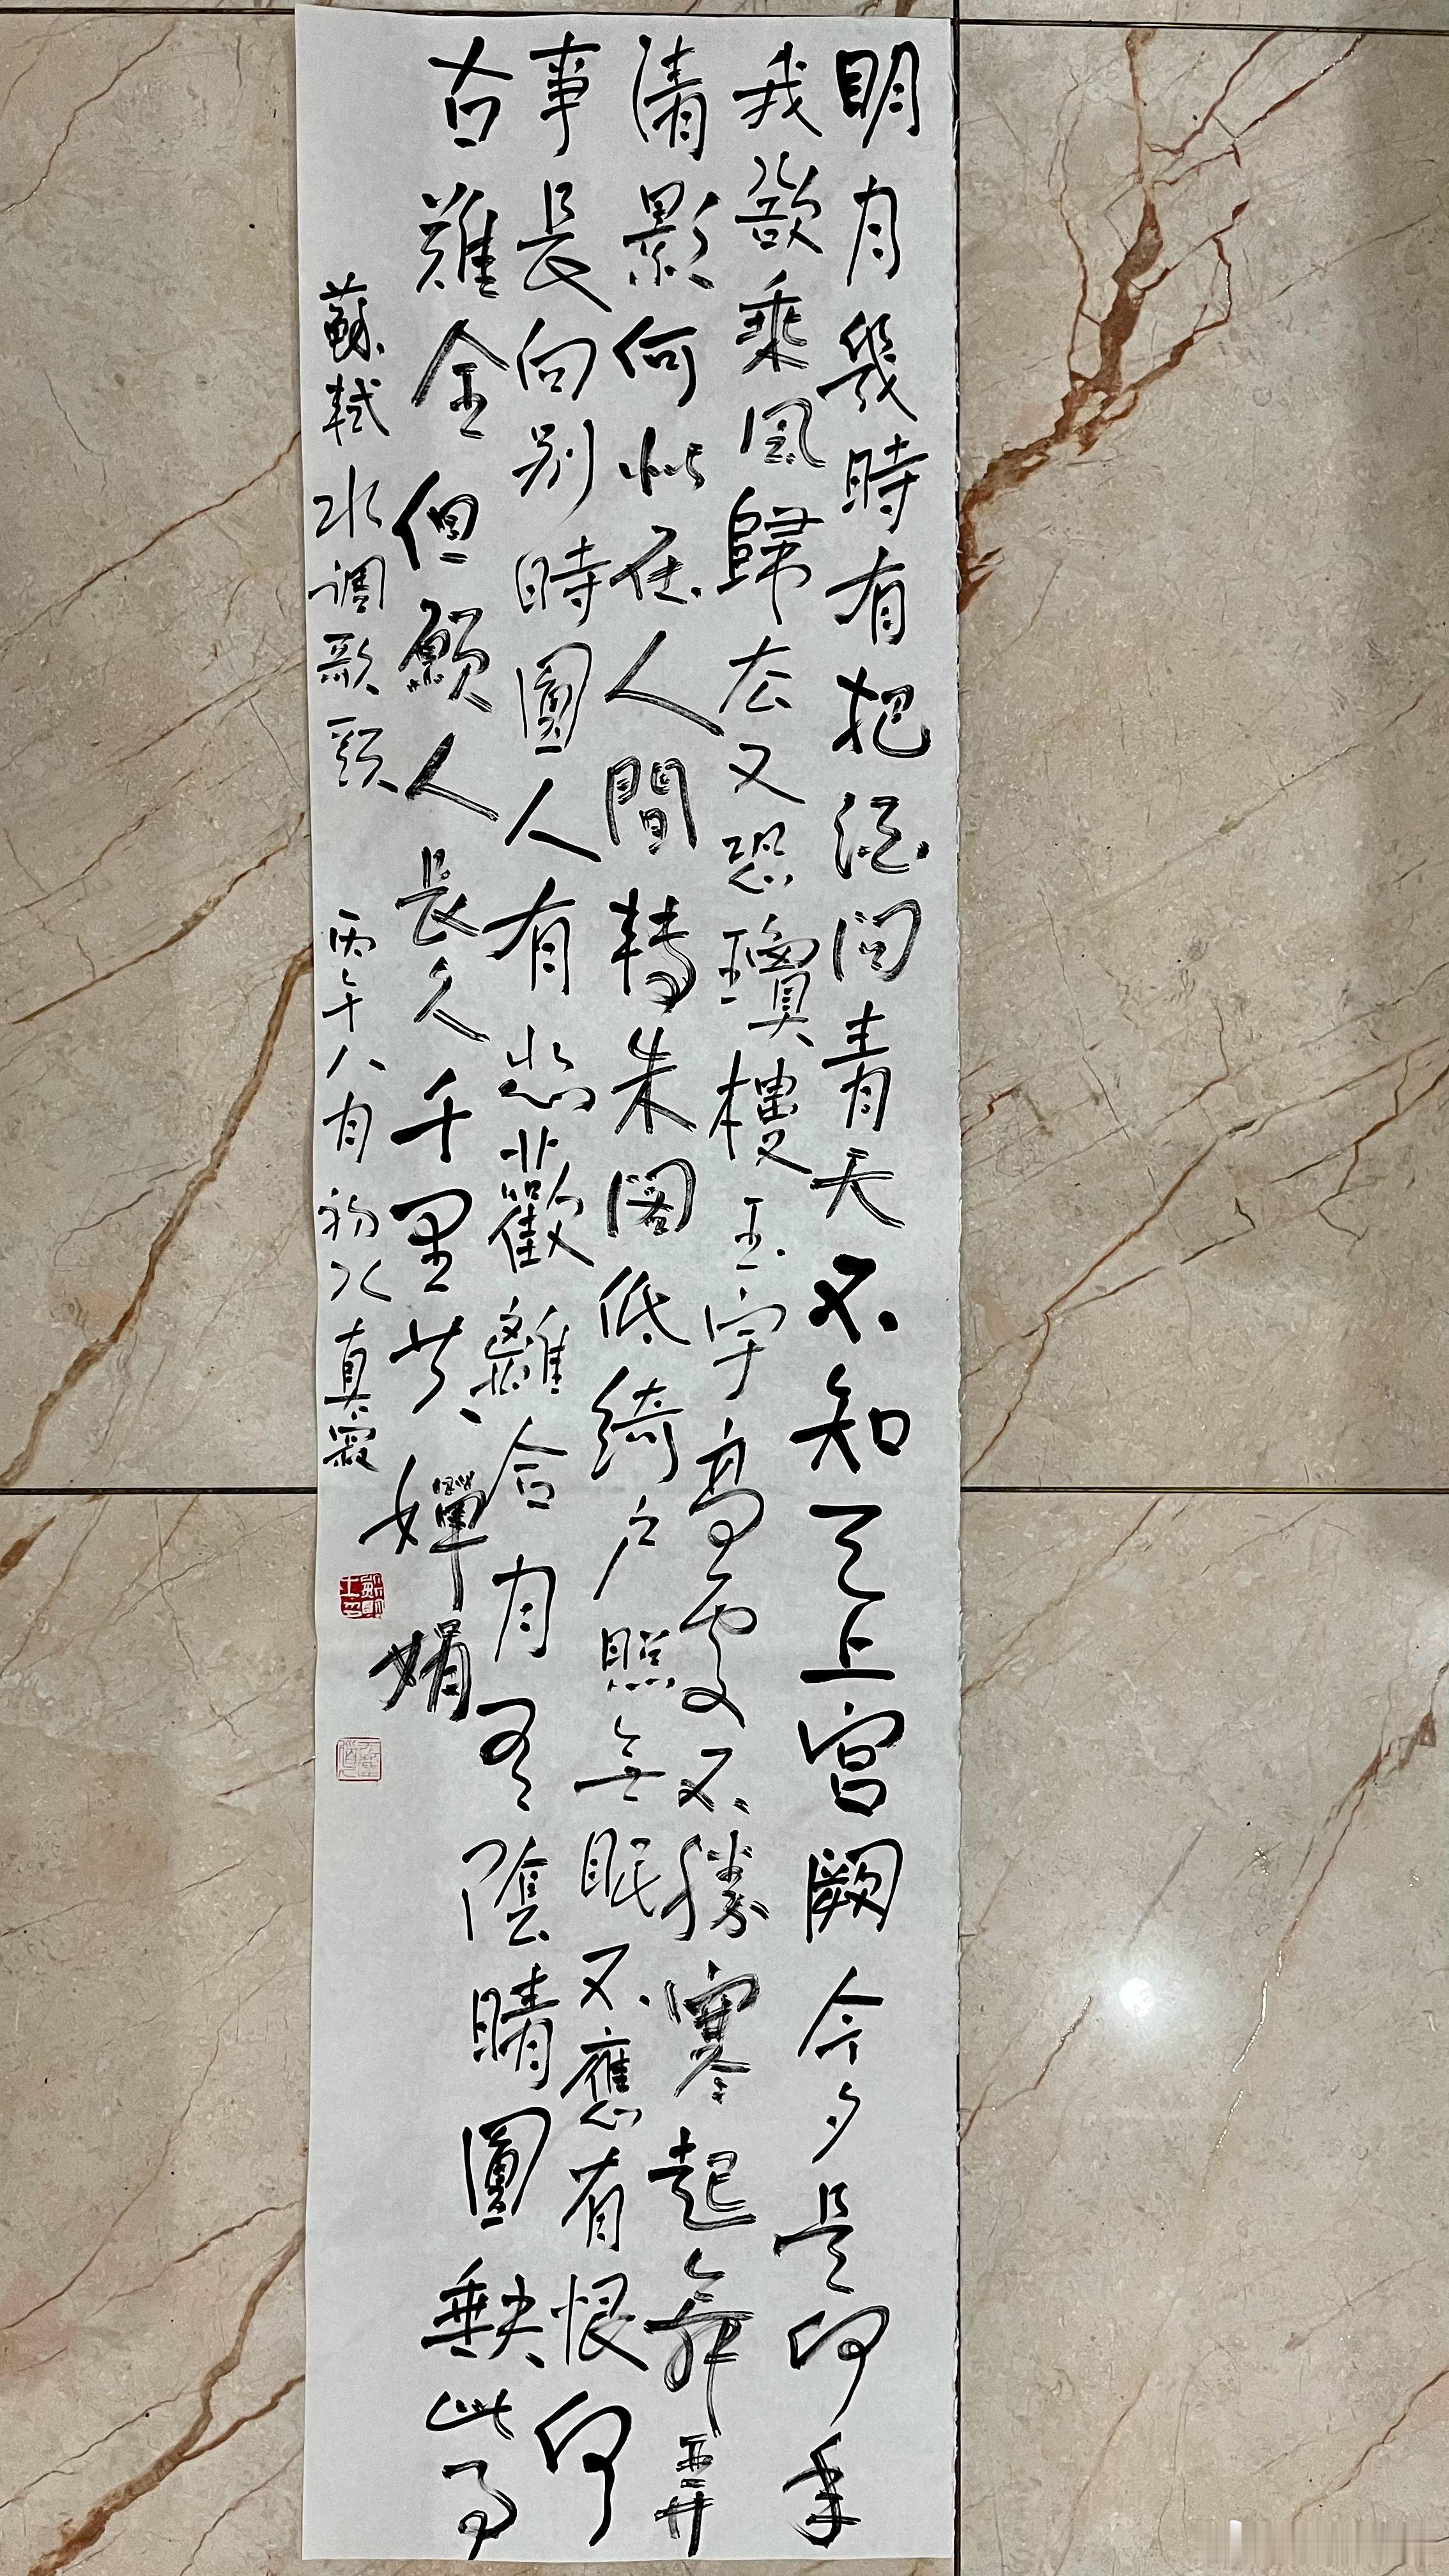 明月幾時有把酒問青天不知天上宮闕今夕是何年
我欲乘風歸去又恐瓊樓玉宇高處不勝寒起舞弄
清影何似在人間轉朱閣低綺户照無眠不應有恨何
事長向别時圓人有悲歡離合月有陰晴圓缺此事
古難全但願人長久千里共嬋娟
蘇軾 水调歌頭 丙午八月初八 真寂